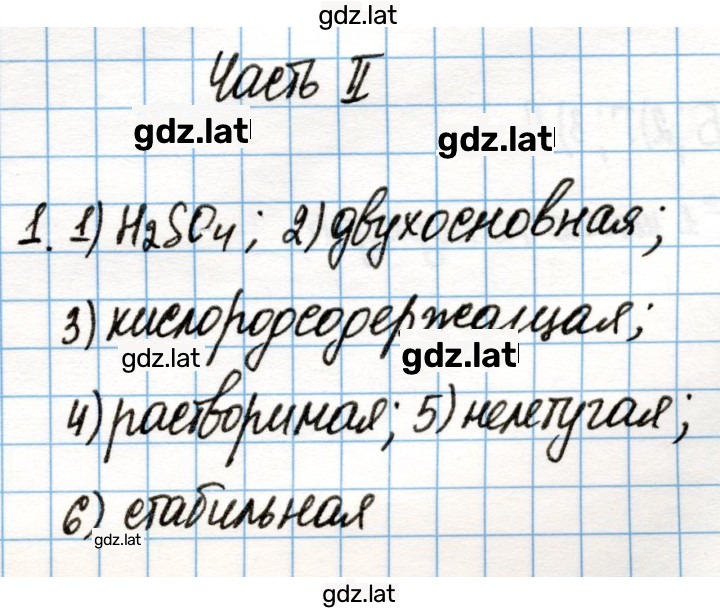 gdz.lat
Часть II
gdz.lat
gdz.lat
1. 1) H2SO4; 2) двухосновная;
3) кислородсодержащая;
gdz.lat
gdz.lat
4) растворимая; 5) нелетучая;
6) стабильная
gdz.lat
gdz.lat